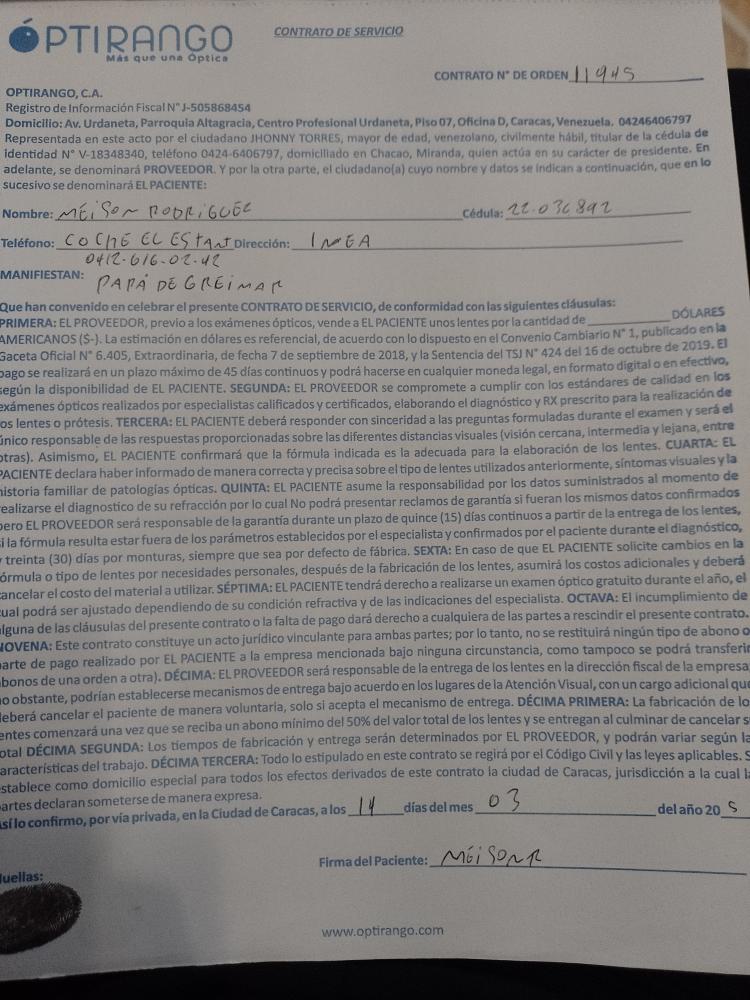 OPTIRANGO
Más que una Óptica
CONTRATO DE SERVICIO
CONTRATO N° DE ORDEN 11945
OPTIRANGO, C.A.
Registro de Información Fiscal N° J-505868454
Domicilio: Av. Urdaneta, Parroquia Altagracia, Centro Profesional Urdaneta, Piso 07, Oficina D, Caracas, Venezuela. 04246406797
Representada en este acto por el ciudadano JHONNY TORRES, mayor de edad, venezolano, civilmente hábil, titular de la cédula de
identidad N° V-18348340, teléfono 0424-6406797, domiciliado en Chacao, Miranda, quien actúa en su carácter de presidente. En
adelante, se denominará PROVEEDOR. Y por la otra parte, el ciudadano(a) cuyo nombre y datos se indican a continuación, que en lo
sucesivo se denominará EL PACIENTE:
Nombre: MEISON RODRIGUEZ Cédula: 22.036892
Teléfono: COCHE EL ESTANT Dirección: INEA
0412-616-02-42
MANIFIESTAN: PAPÁ DE GREIMAR
Que han convenido en celebrar el presente CONTRATO DE SERVICIO, de conformidad con las siguientes cláusulas:
PRIMERA: EL PROVEEDOR, previo a los exámenes ópticos, vende a EL PACIENTE unos lentes por la cantidad de DÓLARES
AMERICANOS (S-). La estimación en dólares es referencial, de acuerdo con lo dispuesto en el Convenio Cambiario N° 1, publicado en la
Gaceta Oficial N° 6.405, Extraordinaria, de fecha 7 de septiembre de 2018, y la Sentencia del TSJ N° 424 del 16 de octubre de 2019. El
pago se realizará en un plazo máximo de 45 días continuos y podrá hacerse en cualquier moneda legal, en formato digital o en efectivo,
según la disponibilidad de EL PACIENTE. SEGUNDA: EL PROVEEDOR se compromete a cumplir con los estándares de calidad en los
exámenes ópticos realizados por especialistas calificados y certificados, elaborando el diagnóstico y RX prescrito para la realización de
los lentes o prótesis. TERCERA: EL PACIENTE deberá responder con sinceridad a las preguntas formuladas durante el examen y será el
único responsable de las respuestas proporcionadas sobre las diferentes distancias visuales (visión cercana, intermedia y lejana, entre
otras). Asimismo, EL PACIENTE confirmará que la fórmula indicada es la adecuada para la elaboración de los lentes. CUARTA: EL
PACIENTE declara haber informado de manera correcta y precisa sobre el tipo de lentes utilizados anteriormente, síntomas visuales y la
historia familiar de patologías ópticas. QUINTA: EL PACIENTE asume la responsabilidad por los datos suministrados al momento de
realizarse el diagnostico de su refracción por lo cual No podrá presentar reclamos de garantía si fueran los mismos datos confirmados
pero EL PROVEEDOR será responsable de la garantía durante un plazo de quince (15) días continuos a partir de la entrega de los lentes,
si la fórmula resulta estar fuera de los parámetros establecidos por el especialista y confirmados por el paciente durante el diagnóstico,
y treinta (30) días por monturas, siempre que sea por defecto de fábrica. SEXTA: En caso de que EL PACIENTE solicite cambios en la
fórmula o tipo de lentes por necesidades personales, después de la fabricación de los lentes, asumirá los costos adicionales y deberá
cancelar el costo del material a utilizar. SÉPTIMA: EL PACIENTE tendrá derecho a realizarse un examen óptico gratuito durante el año, el
cual podrá ser ajustado dependiendo de su condición refractiva y de las indicaciones del especialista. OCTAVA: El incumplimiento de
alguna de las cláusulas del presente contrato o la falta de pago dará derecho a cualquiera de las partes a rescindir el presente contrato.
NOVENA: Este contrato constituye un acto jurídico vinculante para ambas partes; por lo tanto, no se restituirá ningún tipo de abono o
parte de pago realizado por EL PACIENTE a la empresa mencionada bajo ninguna circunstancia, como tampoco se podrá transferir
abonos de una orden a otra). DÉCIMA: EL PROVEEDOR será responsable de la entrega de los lentes en la dirección fiscal de la empresa,
no obstante, podrían establecerse mecanismos de entrega bajo acuerdo en los lugares de la Atención Visual, con un cargo adicional que
deberá cancelar el paciente de manera voluntaria, solo si acepta el mecanismo de entrega. DÉCIMA PRIMERA: La fabricación de lo
lentes comenzará una vez que se reciba un abono mínimo del 50% del valor total de los lentes y se entregan al culminar de cancelar s
total DÉCIMA SEGUNDA: Los tiempos de fabricación y entrega serán determinados por EL PROVEEDOR, y podrán variar según la
características del trabajo. DÉCIMA TERCERA: Todo lo estipulado en este contrato se regirá por el Código Civil y las leyes aplicables. S
establece como domicilio especial para todos los efectos derivados de este contrato la ciudad de Caracas, jurisdicción a la cual la
partes declaran someterse de manera expresa.
Así lo confirmo, por vía privada, en la Ciudad de Caracas, a los 14 días del mes 03 del año 20 5
Firma del Paciente: MEISON R
Huellas:
www.optirango.com